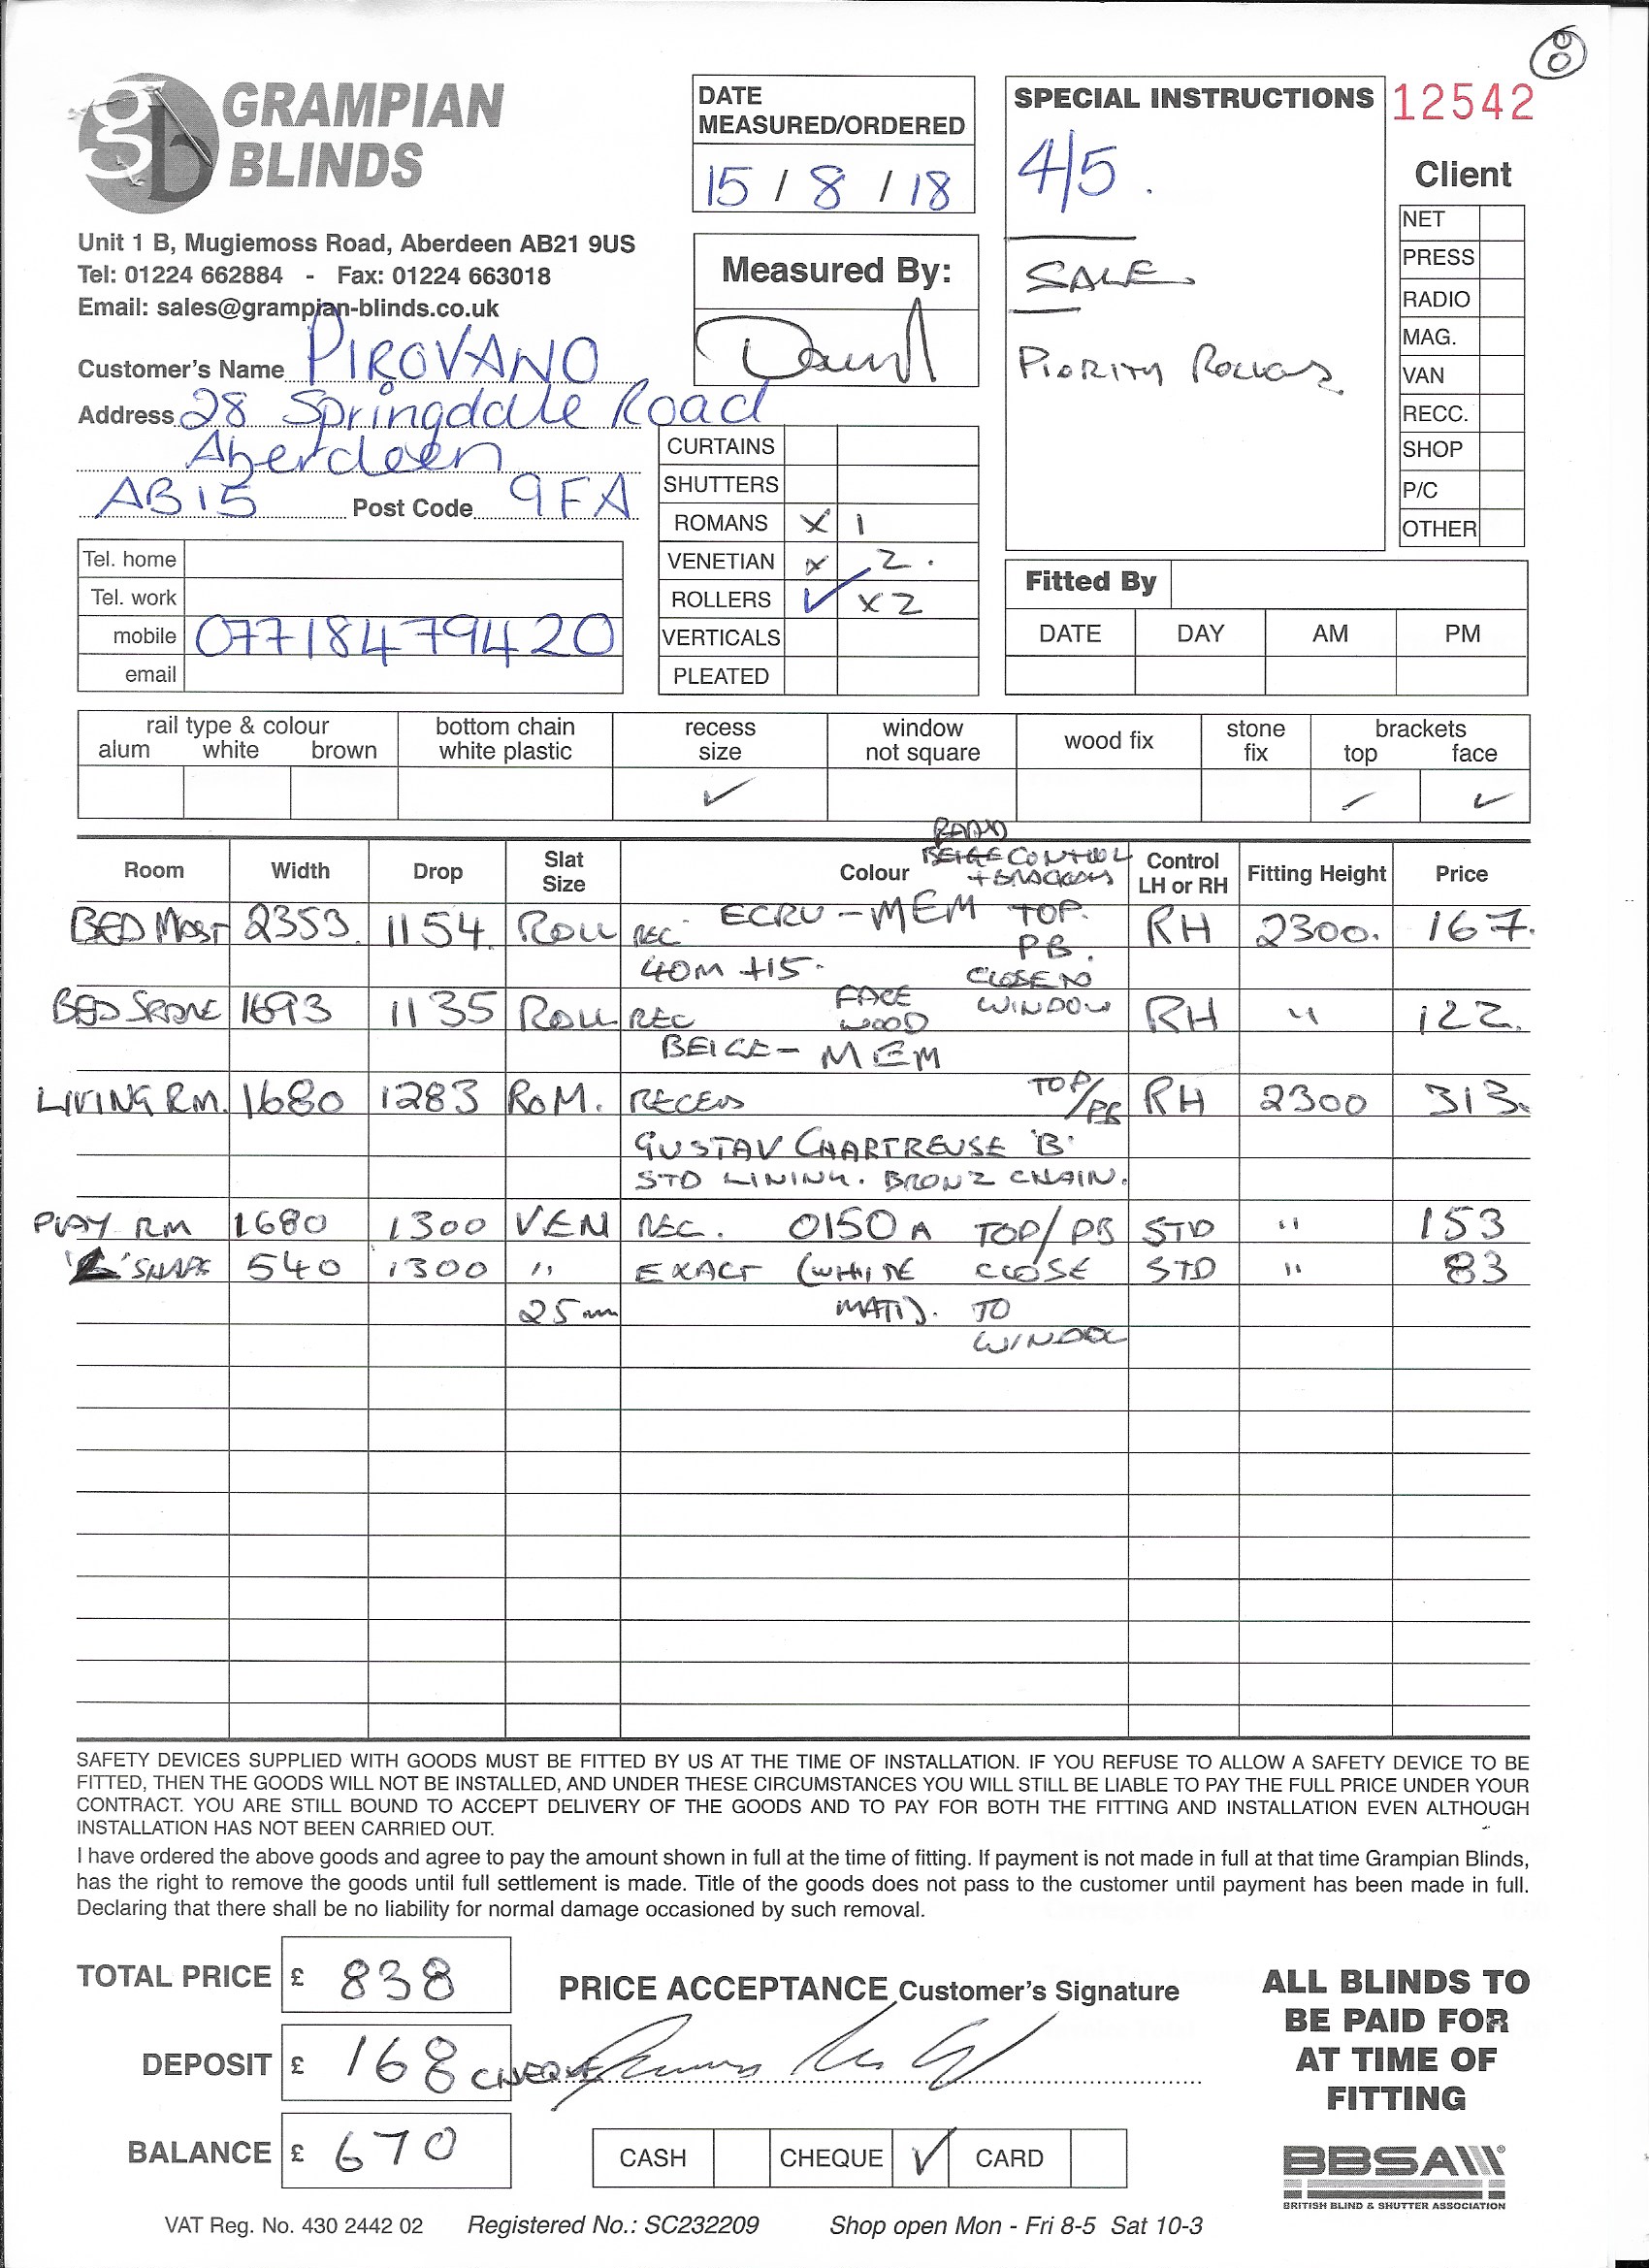 8
GRAMPIAN
BLINDS
Unit 1 B, Mugiemoss Road, Aberdeen AB21 9US
Tel: 01224 662884 - Fax: 01224 663018
Email: sales@grampian-blinds.co.uk
Customer's Name PIROVANO
Address 28 Springdale Road
Aberdeen
AB15 Post Code 9FA
Tel. home
Tel. work
mobile 07718479420
email
DATE
MEASURED/ORDERED
15 / 8 / 18
Measured By:
David
CURTAINS
SHUTTERS
ROMANS X 1
VENETIAN X 2.
ROLLERS ✓ X2
VERTICALS
PLEATED
SPECIAL INSTRUCTIONS
4/5.
SALE
12542
Client
NET
PRESS
RADIO
MAG.
VAN
RECC.
SHOP
P/C
OTHER
Fitted By
DATE DAY AM PM
rail type & colour bottom chain recess window wood fix stone brackets
alum white brown white plastic size not square fix top face
✓ ✓ ✓
BEIGE CONTROL
Room Width Drop Slat Size Colour + BRACKETS Control LH or RH Fitting Height Price
BED MAST 2353 1154 ROLL REC ECRU - MEM TOP. RH 2300. 167.
PB.
40M +15. CLOSE TO
BED SPARE 1693 1135 ROLL REC FACE WOOD WINDOW RH " 122.
BEIGE - MEM
LIVING RM. 1680 1283 ROM. RECESS TOP/PB RH 2300 313.
GUSTAV CHARTREUSE 'B'
STD LINING. BRONZ CHAIN.
PLAY RM 1680 1300 VEN REC. 0150 A TOP/PB STD " 153
'L' SHAPE 540 1300 " EXACT (WHITE CLOSE STD " 83
25mm MATT). TO
WINDOW
SAFETY DEVICES SUPPLIED WITH GOODS MUST BE FITTED BY US AT THE TIME OF INSTALLATION. IF YOU REFUSE TO ALLOW A SAFETY DEVICE TO BE
FITTED, THEN THE GOODS WILL NOT BE INSTALLED, AND UNDER THESE CIRCUMSTANCES YOU WILL STILL BE LIABLE TO PAY THE FULL PRICE UNDER YOUR
CONTRACT. YOU ARE STILL BOUND TO ACCEPT DELIVERY OF THE GOODS AND TO PAY FOR BOTH THE FITTING AND INSTALLATION EVEN ALTHOUGH
INSTALLATION HAS NOT BEEN CARRIED OUT.
I have ordered the above goods and agree to pay the amount shown in full at the time of fitting. If payment is not made in full at that time Grampian Blinds,
has the right to remove the goods until full settlement is made. Title of the goods does not pass to the customer until payment has been made in full.
Declaring that there shall be no liability for normal damage occasioned by such removal.
TOTAL PRICE £ 838
DEPOSIT £ 168 CHEQUE
BALANCE £ 670
PRICE ACCEPTANCE Customer's Signature
CASH CHEQUE ✓ CARD
ALL BLINDS TO
BE PAID FOR
AT TIME OF
FITTING
BBSA
BRITISH BLIND & SHUTTER ASSOCIATION
VAT Reg. No. 430 2442 02 Registered No.: SC232209 Shop open Mon - Fri 8-5 Sat 10-3